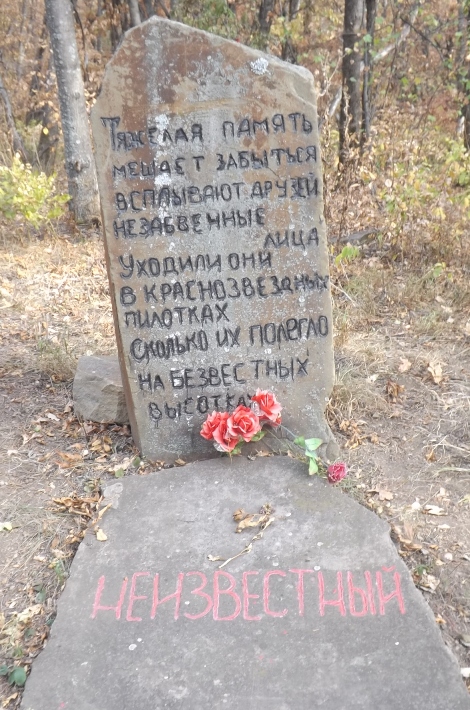 Тяжелая память
мешает забыться
всплывают друзей
незабвенные
лица
Уходили они
в краснозвездных
пилотках
Сколько их полегло
на безвестных
высотках
НЕИЗВЕСТНЫЙ